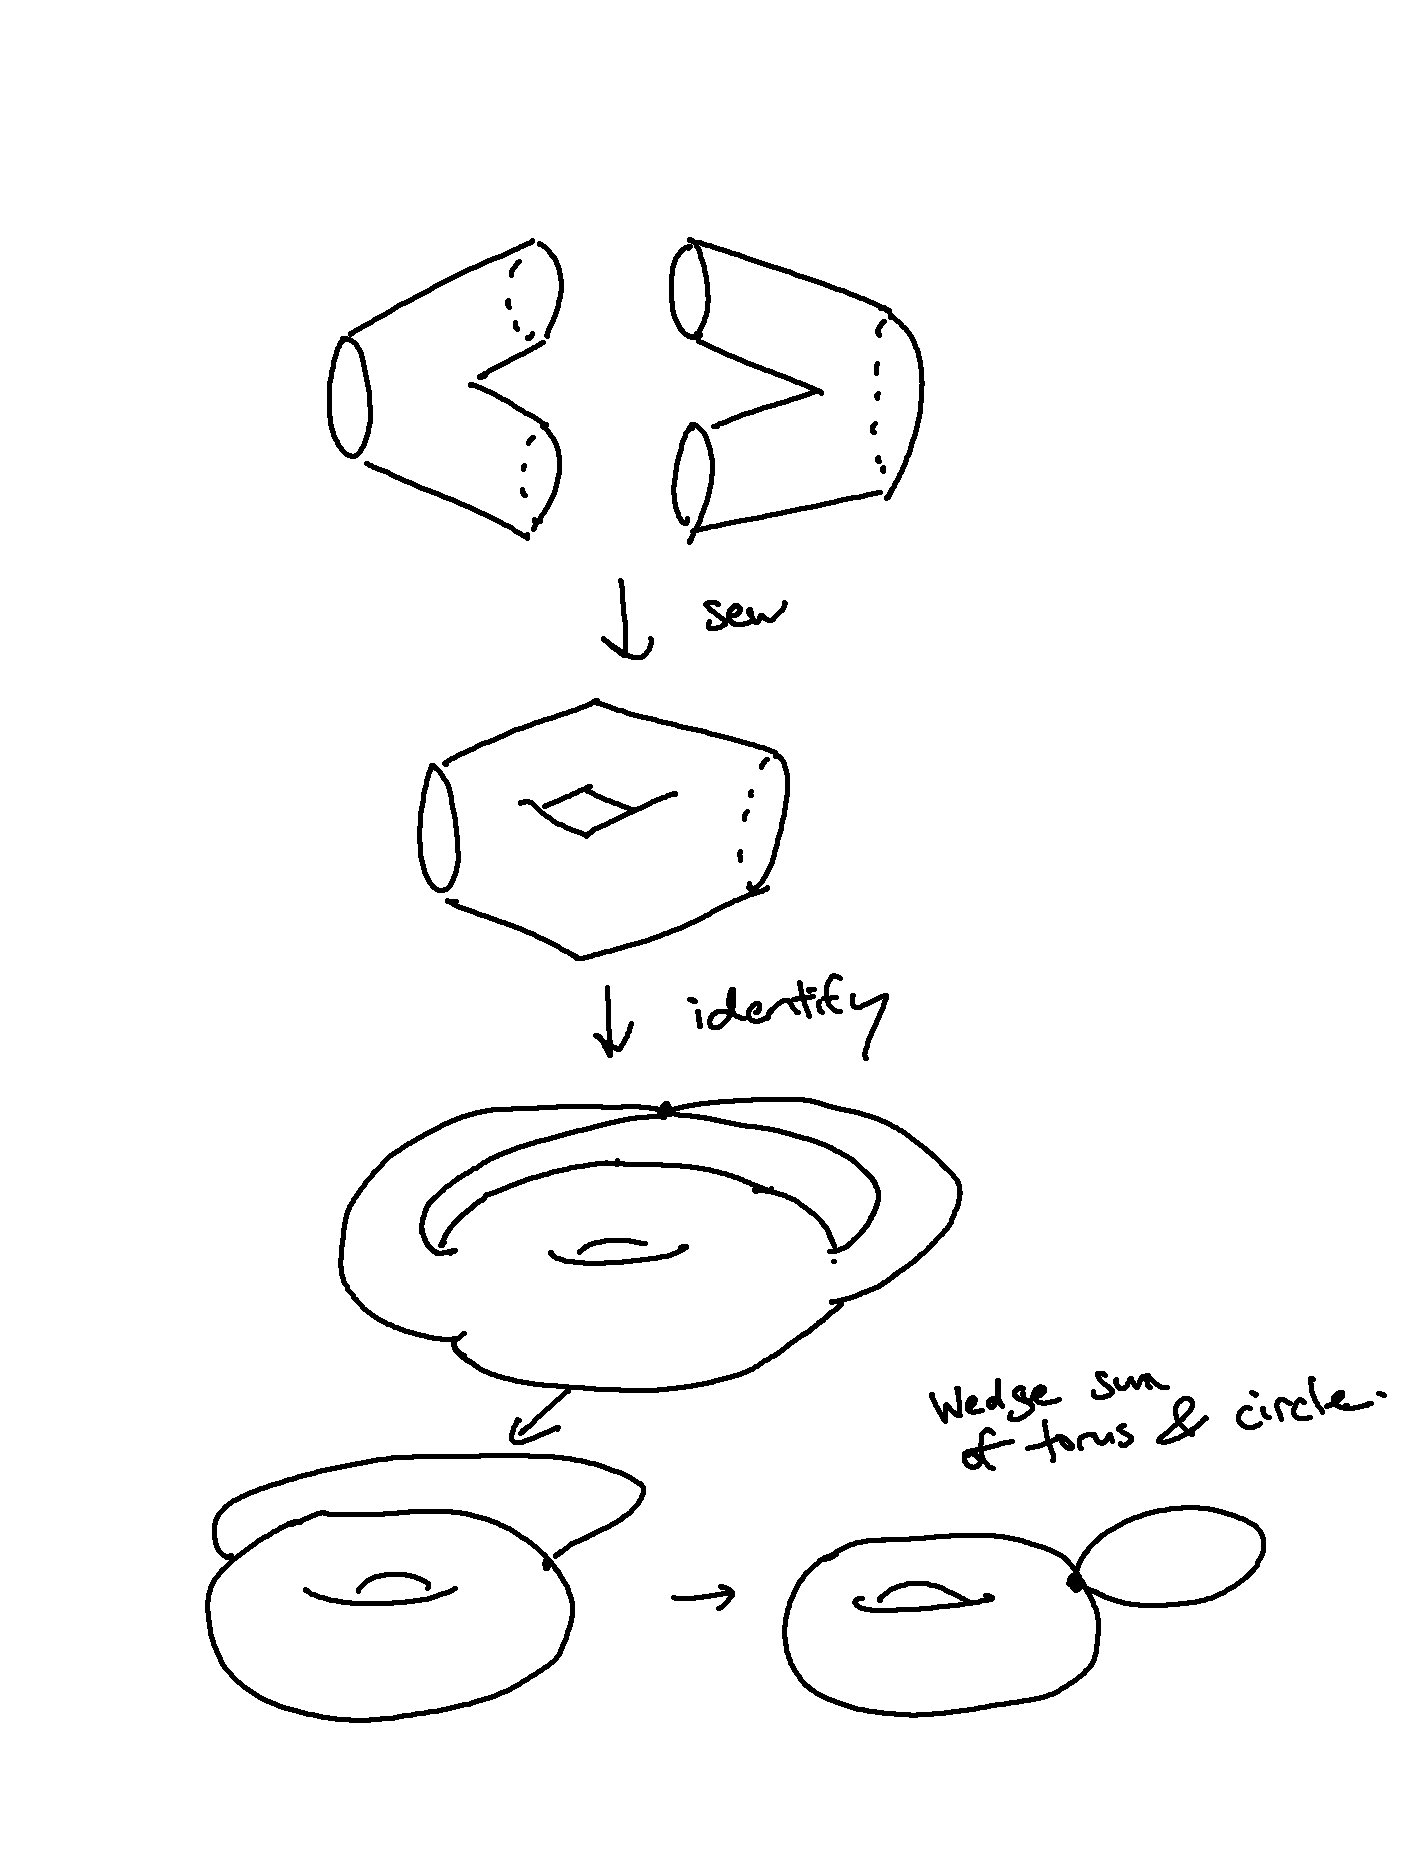 sew
identify
Wedge sum
of torus & circle.